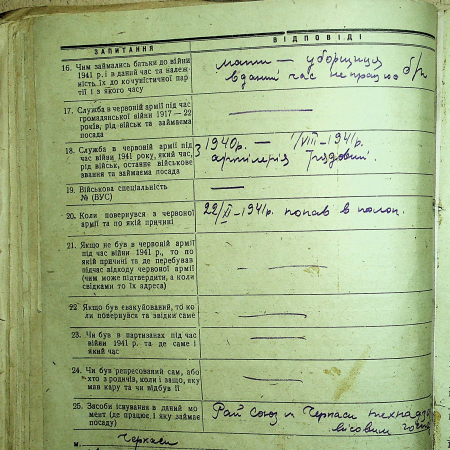 ЗАПИТАННЯ
ВІДПОВІДІ
16. Чим займались батьки до війни
1941 р. і в даний час та належ-
ність їх до комуністичної пар-
тії і з якого часу
мати — уборщиця б/п
в даний час не працює
17. Служба в червоній армії під час
громадянської війни 1917 — 22
років, рід військ та займаєма
посада
18. Служба в червоній армії під
час війни 1941 року, який час,
рід військ, останнє військове
звання та займаєма посада
З 1940р. — 1/VIII-1941р.
артилерія Рядовий.
19. Військова спеціальність
№ (ВУС)
20. Коли повернувся з червоної
армії та по якій причині
1941р. попав в полон.
21. Якщо не був в червоній армії
під час війни 1941 р., то по
якій причині та де перебував
підчас відходу червоної армії
(чим може підтвердити, а коли
свідками то їх адреса)
22 Якщо був евакуйований, то ко-
ли повернувся та звідки саме
23. Чи був в партизанах під час
війни 1941 р. та де саме і
який час
24. Чи був репресований сам, або
хто з родичів, коли і защо, яку
мав кару та чи відбув її
25. Засоби існування в даний мо-
мент (де працює і яку займає
посаду)
Рай Союз м Черкаси
м. Черкаси